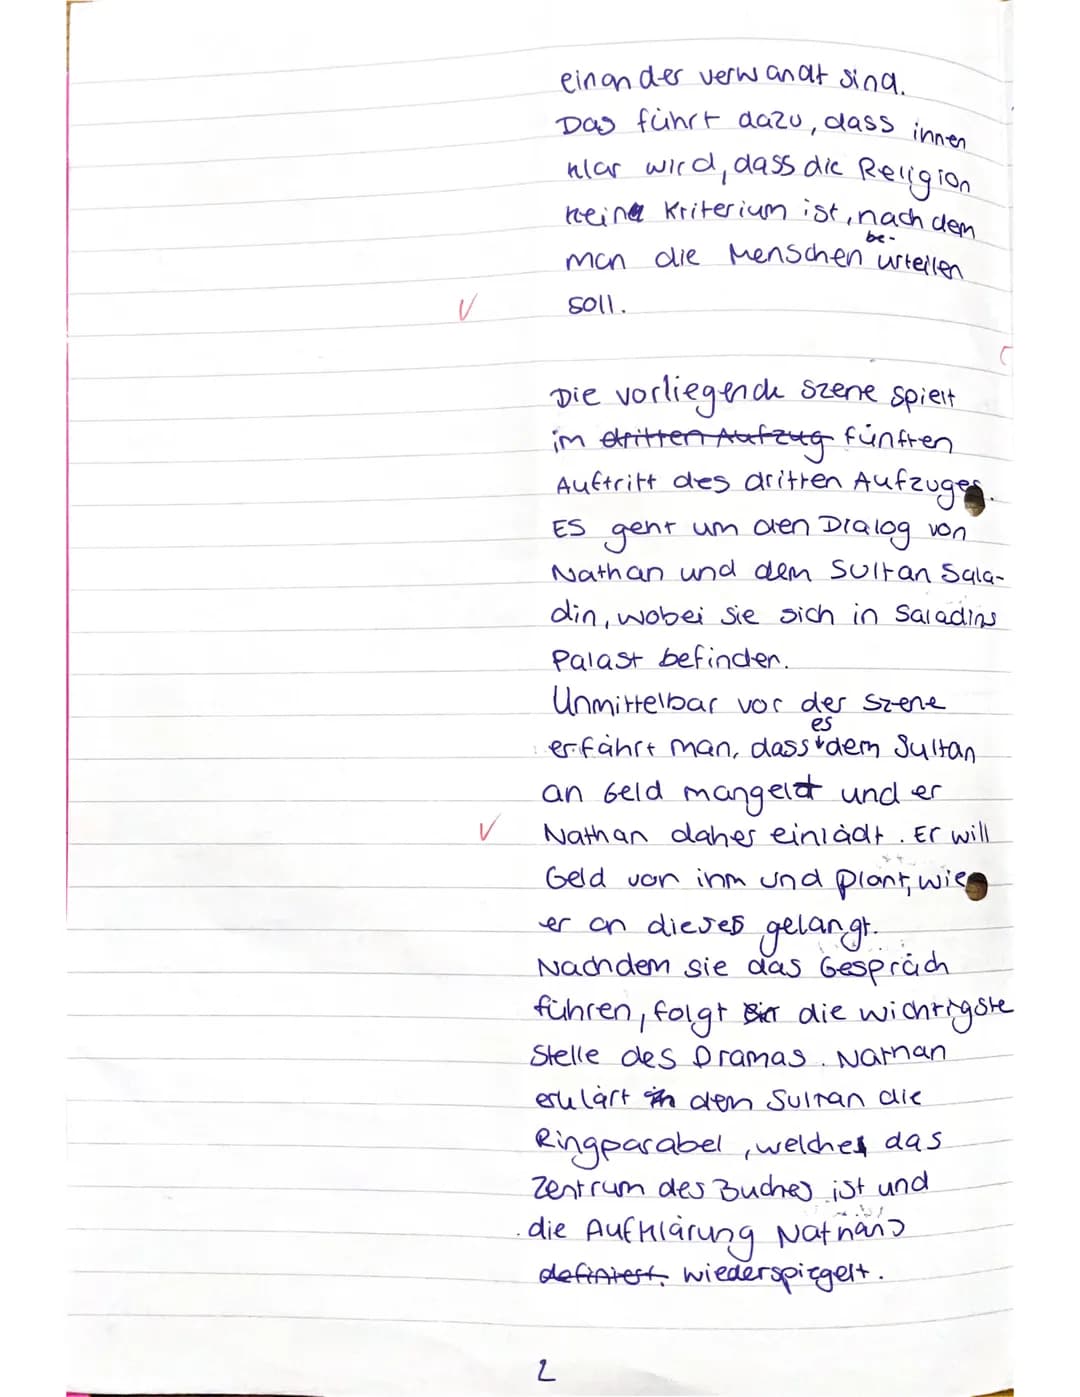 einander verwandt sind.
Das führt dazu, dass ihnen
klar wird, dass die Religion
keine Kriterium ist, nach dem
man die Menschen be-
urteilen
soll.
Die vorliegende Szene spielt
im dritten Aufzug fünften
Auftritt des dritten Aufzuges.
ES geht um den Dialog von
Nathan und dem Sultan Sala-
din, wobei sie sich in Saladins
Palast befinden.
Unmittelbar vor der Szene
es
erfährt man, dass dem Sultan
an Geld mangelt und er
Nathan daher einlädt. Er will
Geld von ihm und plant, wie
er an dieses gelangt.
Nachdem sie das Gespräch
führen, folgt die wichtigste
Stelle des Dramas. Nathan
erklärt den Sultan die
Ringparabel, welches das
Zentrum des Buches ist und
die Aufklärung Nathans
definiert. wiederspiegelt.
2